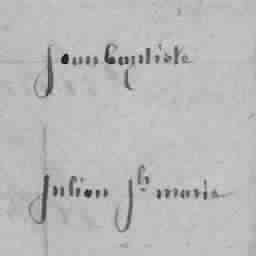 Jean baptiste
Julien Jh marie